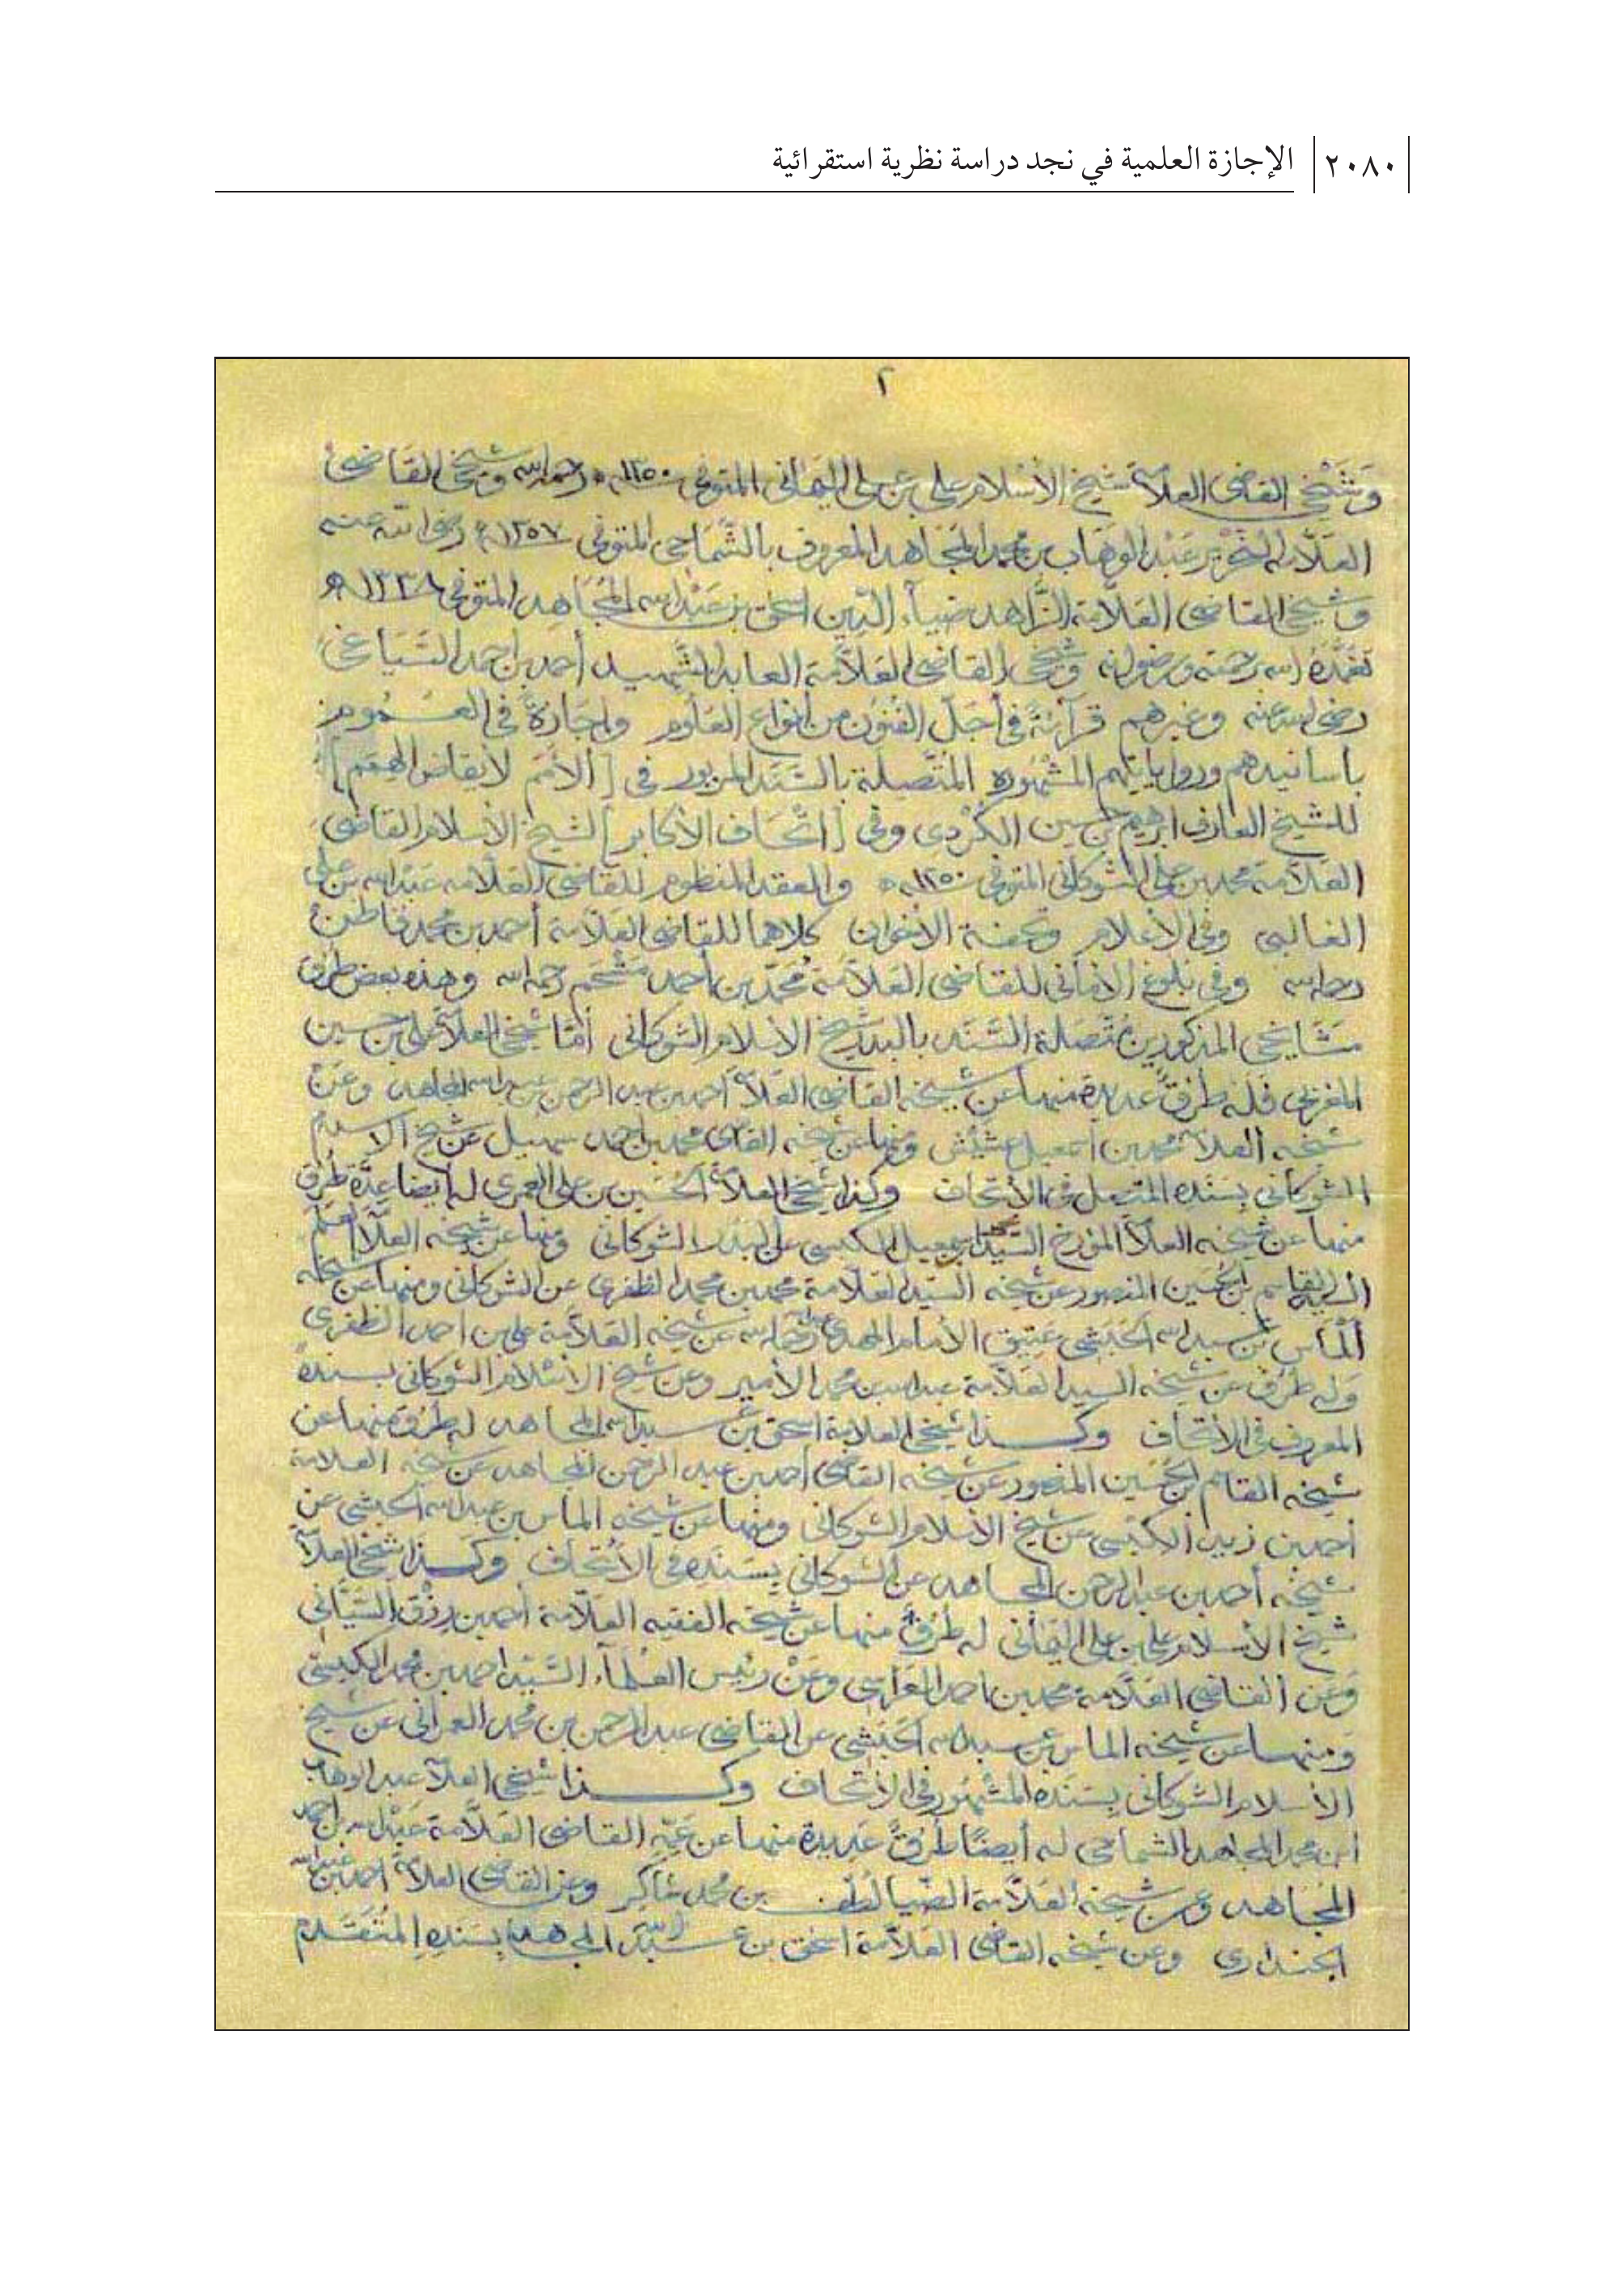 ٢٠٨٠ الإجازة العلمية في نجد دراسة نظرية استقرائية
٢
وَشَيْخي القاضي العلامة شيخ الأسلام علي بن علي اليماني المتوفى رحمه الله وشيخي القاضي
العلامة عبد الوهاب بن محمد المجاهد المعروف بالشماحي المتوفى ١٣٥٧ رضي الله عنه
وشيخي القاضي العلامة الزاهد ضياء الدين اسحق بن عبد الله المجاهد المتوفى ١٣٣٨ه
تغمده الله برحمته ورضوانه وشيخي القاضي العلامة العابد الشهيد أحمد بن احمد السياغي
رضي الله عنه وغيرهم قرآءة في أجل الفنون من أنواع العلوم واجازة في العموم
بأسانيدهم ورواياتهم المشهوره المتصلة بالسند المزبور في [الأمم لايقاظ الهمم]
للشيخ العارف ابرهيم بن حسين الكردي وفي [اتحاف الأكابر] لشيخ الأسلام القاضي
العلامة محمد بن علي الشوكاني المتوفى ١٢٥٠ه والعقد المنظوم للقاضي العلامه عبد الله بن علي
الغالبي وفي الأعلام وتحفة الأخوان كلاهما للقاضي العلامة أحمد بن محمد قاطن
رحمه الله وفي بلوغ الأماني للقاضي العلامة محمد بن أحمد مشحم رحمه الله وهذه بعض طرق
مشايخي المذكورين متصلة السند بالبدر شيخ الاسلام الشوكاني أما شيخي العلامة علي بن حسين
المغربي فله طرق عديدة منها عن شيخه القاضي العلامة أحمد بن عبد الرحمن بن عبد الله المجاهد وعن
شيخه العلامة محمد بن اسمعيل عشيش ومنها عن شيخه القاضي محمد بن أحمد سهيل عن شيخ الاسلام
الشوكاني بسنده المتصل في الأتحاف وكذا شيخي العلامة الحسين بن علي العمري له أيضا عدة طرق
منها عن شيخه العلامة المؤرخ السيد محمد بن اسمعيل الكبسي عن البدر الشوكاني ومنها عن شيخه العلامة
القاسم بن الحسين المنصور عن شيخه السيد العلامة محمد بن محمد الظفري عن الشوكاني ومنها عن شيخه
ألماس بن عبد الله الحبشي عتيق الأمام المهدي رحمه الله عن شيخه العلامة علي بن احمد الظفري
وله طرق عن شيخه السيد العلامة عبد الله بن محمد الأمير وعن شيخ الأسلام الشوكاني بسنده
المعروف في الأتحاف وكذا شيخي العلامة اسحق بن عبد الله المجاهد له طرق منها عن
شيخه القاسم بن الحسين المنصور عن شيخه القاضي أحمد بن عبد الرحمن المجاهد عن شيخه العلامة
أحمد بن زيد الكبسي عن شيخ الأسلام الشوكاني ومنها عن شيخه الماس بن عبد الله الحبشي عن
شيخه أحمد بن عبد الرحمن المجاهد عن الشوكاني بسنده في الأتحاف وكذا شيخي العلامة
شيخ الأسلام علي بن علي اليماني له طرق منها عن شيخه الفقيه العلامة أحمد بن رزق السياني
وعن القاضي العلامة محمد بن احمد العراسي وعن رئيس العلماء السيد احمد بن محمد الكبسي
ومنها عن شيخه الماس بن عبد الله الحبشي عن القاضي عبد الرحمن بن محمد العمراني عن شيخ
الأسلام الشوكاني بسنده المشهور في الأتحاف وكذا شيخي العلامة عبد الوهاب
ابن محمد المجاهد الشماحي له أيضا طرق عديدة منها عن عمه القاضي العلامة عبد الله بن احمد
المجاهد وعن شيخه العلامة الضيا لطف بن محمد شاكر وعن القاضي العلامة احمد بن عبد الله
الجنداري وعن شيخه القاضي العلامة اسحق بن عبد الله المجاهد بسنده المتقدم